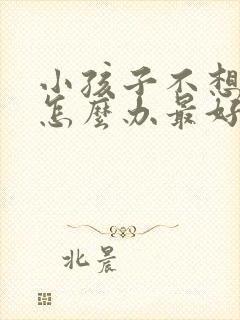 小孩子不想
怎麼办最好
北晨